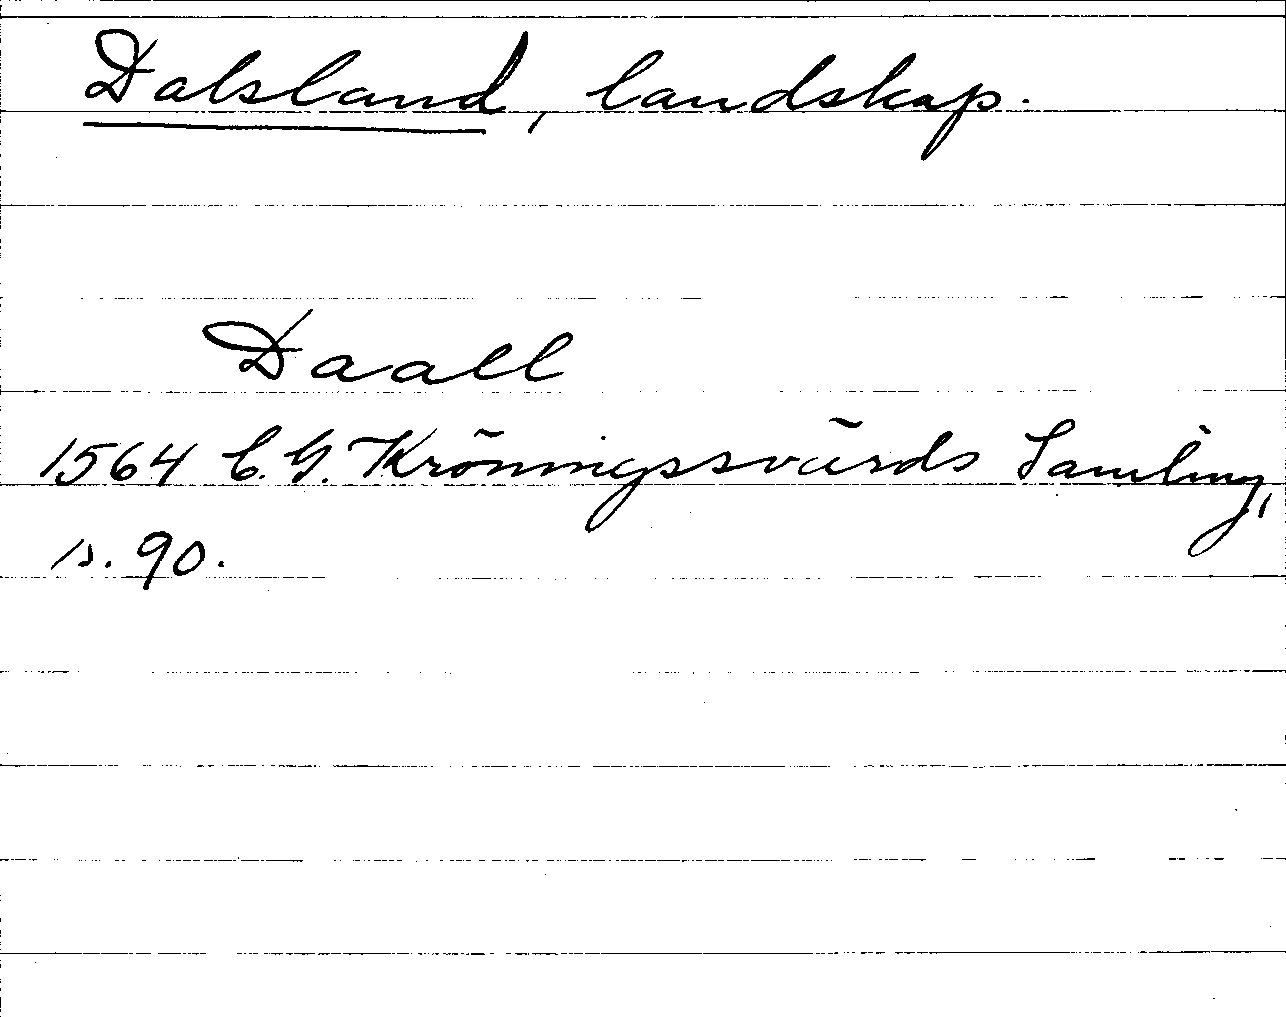 Dalsland, landskap.
Daall
1564 C. G. Kröningssvärds Samling,
s. 90.